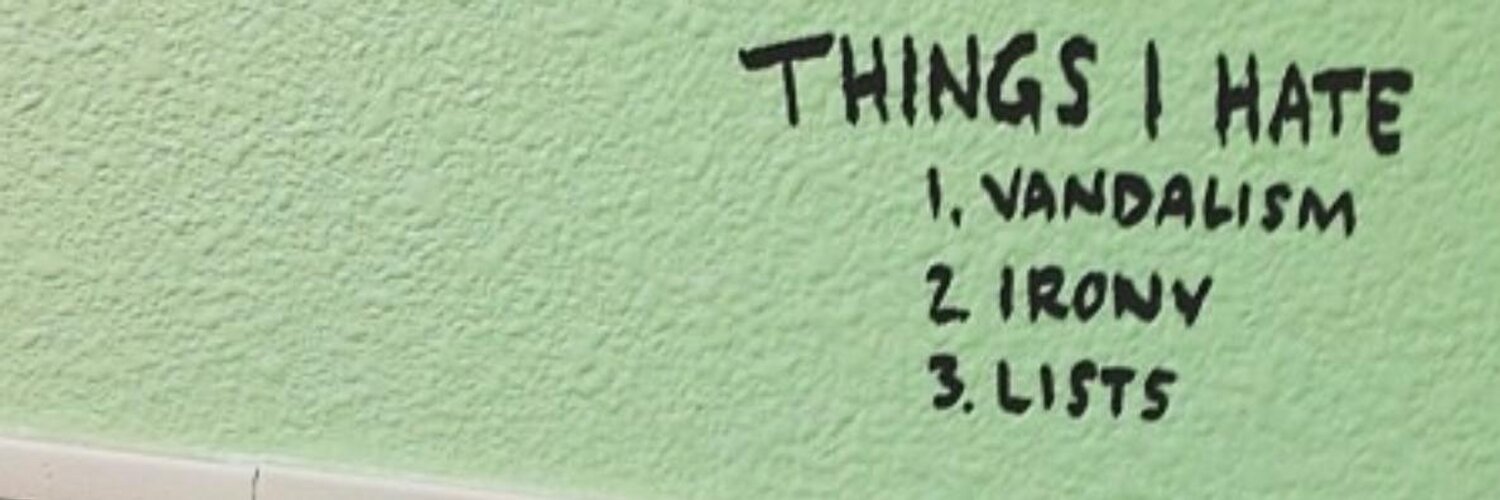 THINGS I HATE
1. VANDALISM
2 IRONY
3. LISTS